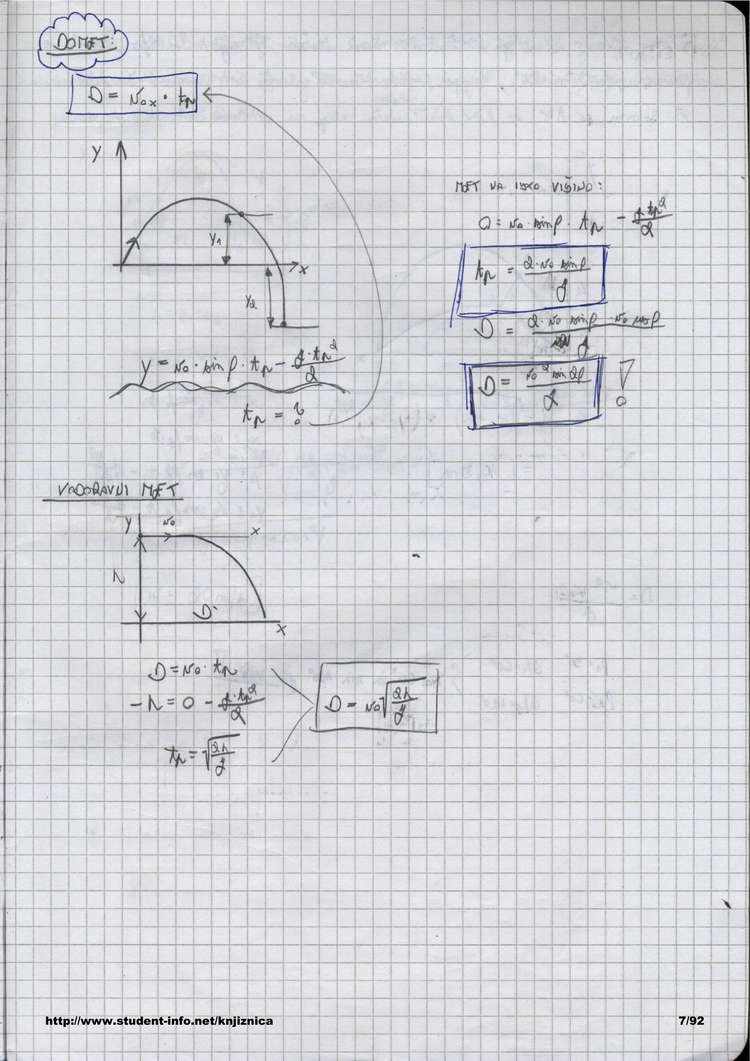 DOMET:
D = v₀ₓ · tₚ
y
y₁
x
y₂
y = v₀ · sinφ · tₚ - g · tₚ²/2
tₚ = ?
MET NA ISTO VIŠINO:
0 = v₀ · sinφ · tₚ - g tₚ²/2
tₚ = 2 · v₀ sinφ / g
D = 2 · v₀ sinφ · v₀ cosφ / g
D = v₀² sin2φ / g !
VODORAVNI MET
y v₀ x
h
D
x
D = v₀ · tₚ
-h = 0 - g · tₚ²/2
tₚ = √(2h/g)
D = v₀ √(2h/g)
http://www.student-info.net/knjiznica 7/92